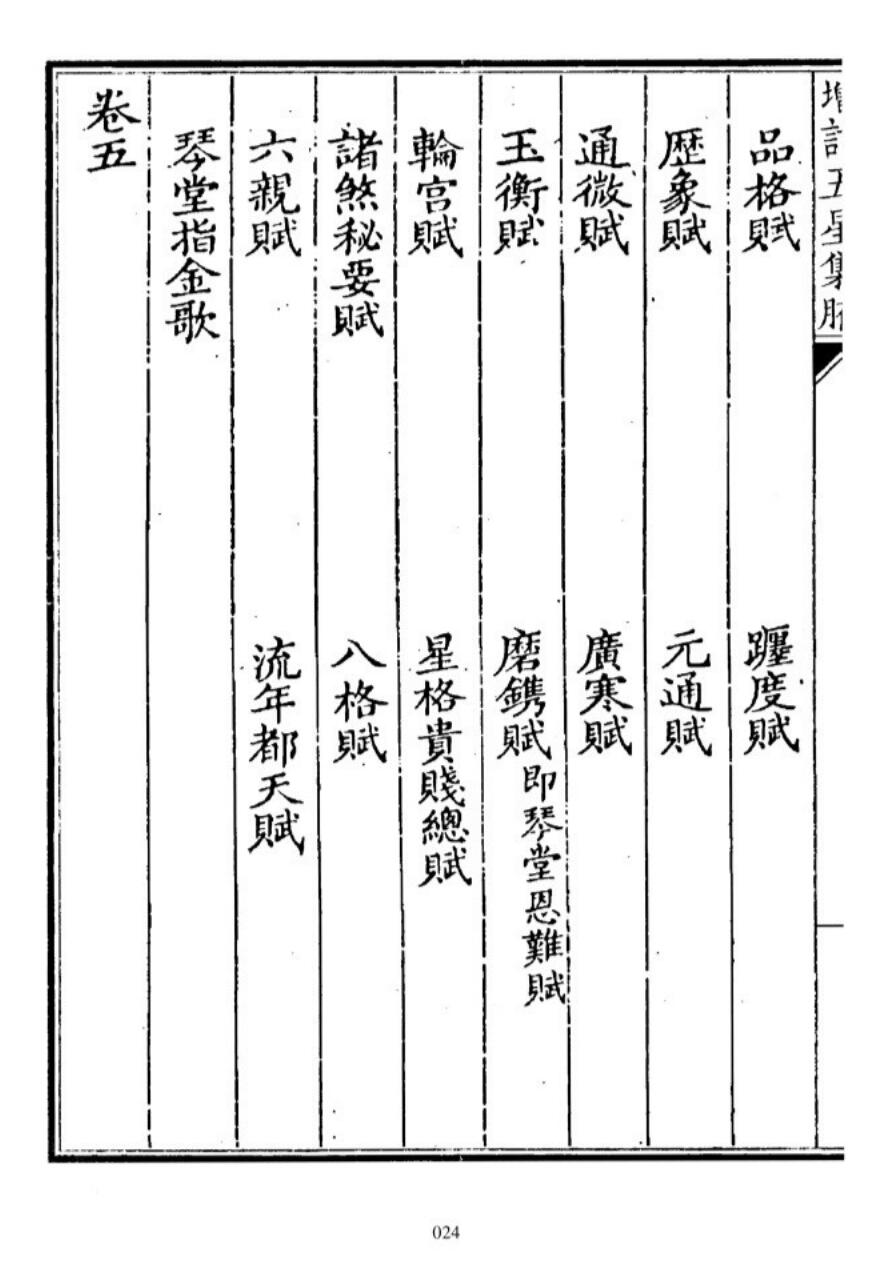 增訂五星集腋
品格賦 躔度賦
歷象賦 元通賦
通微賦 廣寒賦
玉衡賦 磨鐫賦即琴堂恩難賦
輪宮賦 星格貴賤總賦
諸煞秘要賦 八格賦
六親賦 流年都天賦
琴堂指金歌
卷五
024